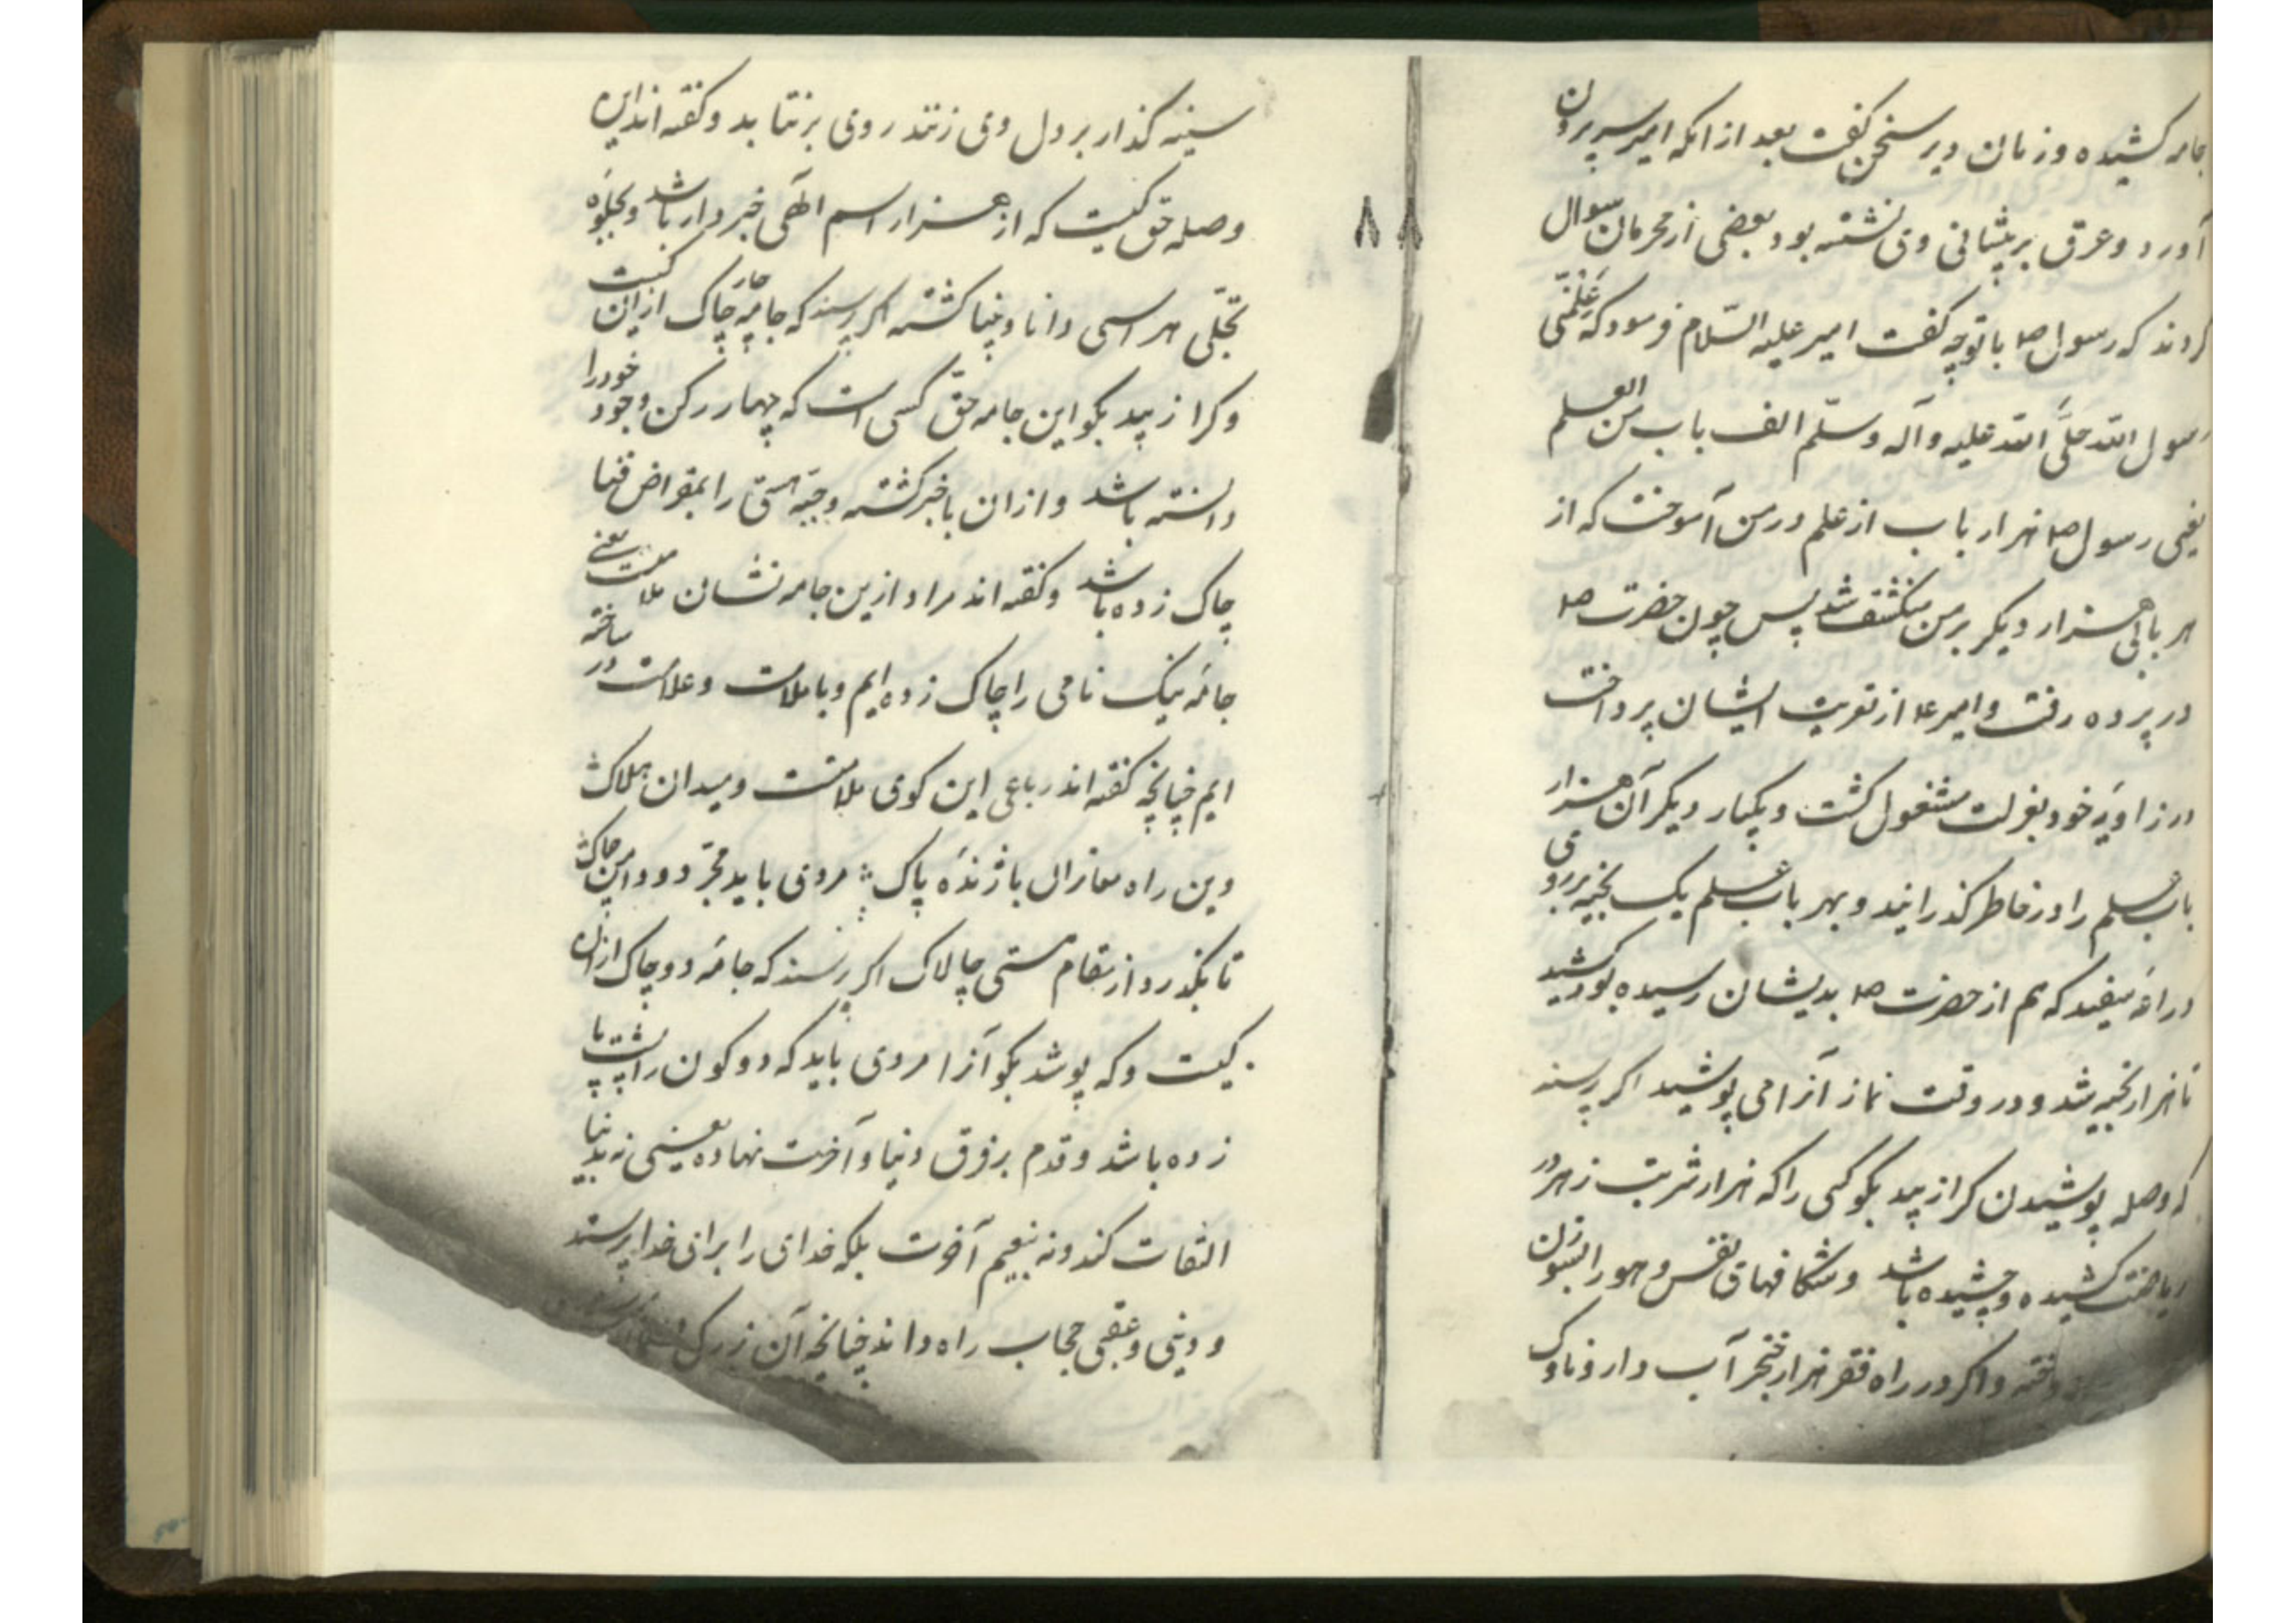 جامه کشیده و زمان دیر سخن گفت بعد از انکه امیر سر برون
آورد و عرق بر پیشانی وی نشسته بود بعضی از محرمان سوال
کردند که رسول ص با تو چه گفت امیر علیه السّلام فرمود که عَلَّمَنی
رسول الله صلَّی الله علیه و آله و سلّم الف باب من العلم
یعنی رسول ص هزار باب از علم در من آموخت که از
هر بابی هزار دیگر بر من منکشف شد پس چون حضرت ص
در پرده رفت و امیر ع از تعزیت ایشان پرداخت
در زاویهٔ خود بعزلت مشغول گشت و یکبار دیگر آن هزار
باب علم را در خاطر گذرانید و بهر باب علم یک بخیه بر روی
دراعهٔ سفید که هم از حضرت ص بدیشان رسیده بود کشید
تا هزار بخیه شد و در وقت نماز آنرا می پوشید اگر پرسند
که وصله پوشیدن کرا زیبد بگو کسی را که هزار شربت زهر در
ریاضت کشیده و چشیده باشد و شکافهای نفس و هوا را بسوزن
دوخته و اگر در راه فقر هزار خنجر آب دار و ناوک
۸۸
سینه گذار بر دل وی زنند روی برنتابد و گفته اند این
وصله حق کیست که از هزار اسم الٓهی خبردار باشد و بجلوه
تجلّی هر اسمی دانا و بینا گشته اگر پرسند که جامهٔ چار چاک ازان کیست
و کرا زیبد بگو این جامه حق کسی است که چهار رکن وجود خود را
دانسته باشد و ازان باخبر گشته و جبّهٔ هستی را بمقراض فنا
چاک زده باشد و گفته اند مراد ازین جامه نشان ملامت یعنی
جامهٔ نیک نامی را چاک زده ایم و با ملامت و علامت در ساخته
ایم چنانچه گفته اند رباعی این کوی ملامتست و میدان هلاک
وین راه مقامران بازندهٔ پاک مردی باید مجرّد و دامن چاک
تا بگذرد از مقام هستی چالاک اگر پرسند که جامهٔ دو چاک ازان
کیست و که پوشد بگو آنرا مردی باید که دو کون را پشت پا
زده باشد و قدم بر فرق دنیا و آخرت نهاده یعنی نه بدنیا
التفات کند و نه بنعیم آخرت بلکه خدای را برای خدا پرستد
و دینی و عقبی حجاب راه داند چنانچه آن بزرگ